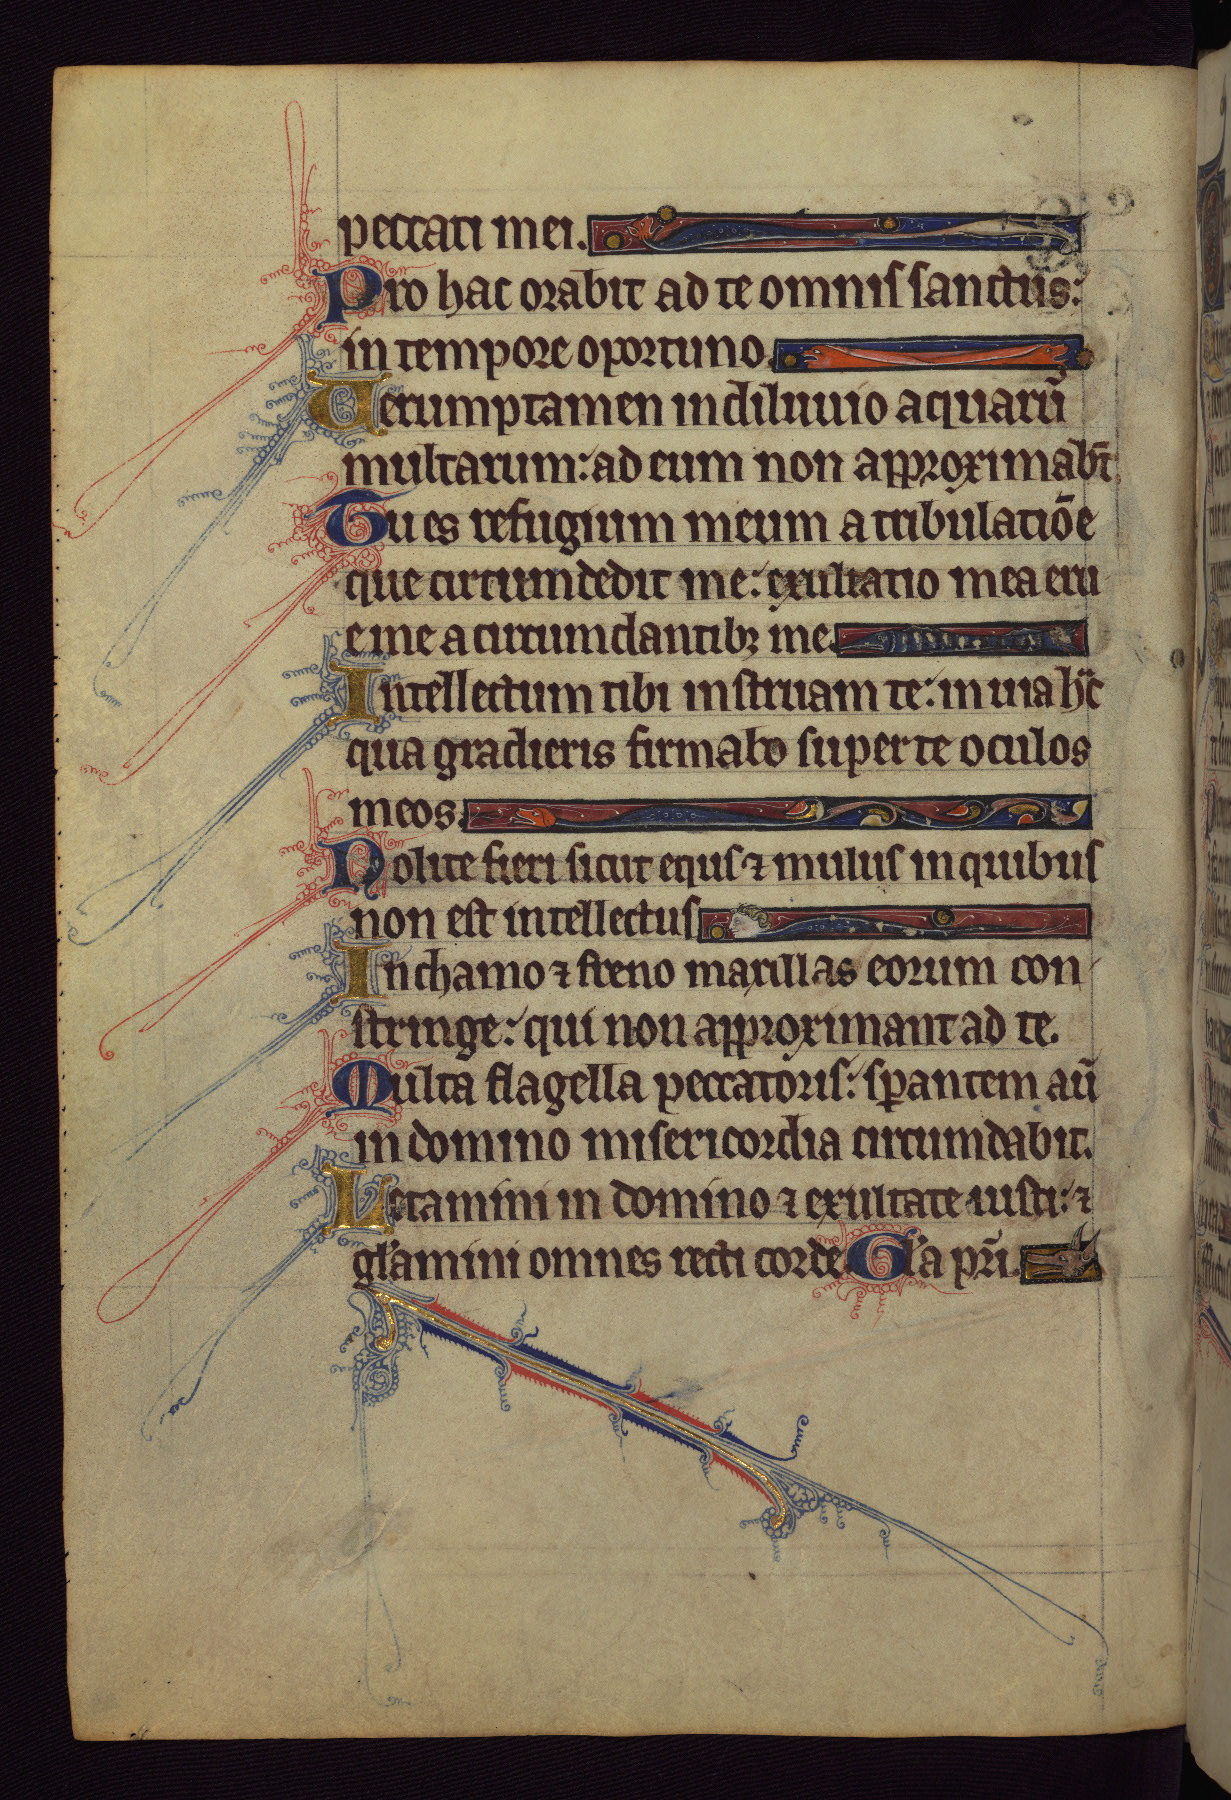 peccati mei.
Pro hac orabit ad te omnis sanctus:
in tempore oportuno.
Uerumptamen in diluuio aquarū
multarum: ad eum non approximabt̄
Tu es refugium meum a tribulatiōe
que circumdedit me: exultatio mea eru
e me a circumdantibꝫ me.
Intellectum tibi instruam te: in uia hͨ
qua gradieris firmabo super te oculos
meos.
Nolite fieri sicut equs ⁊ mulus in quibus
non est intellectus
In chamo ⁊ freno maxillas eorum con
stringe: qui non approximant ad te.
Multa flagella peccatoris: sꝑantem aū
in domino misericordia circumdabit.
Letamini in domino ⁊ exultate iusti: ⁊
gl'amini omnes recti corde Gl'a pr̄i.